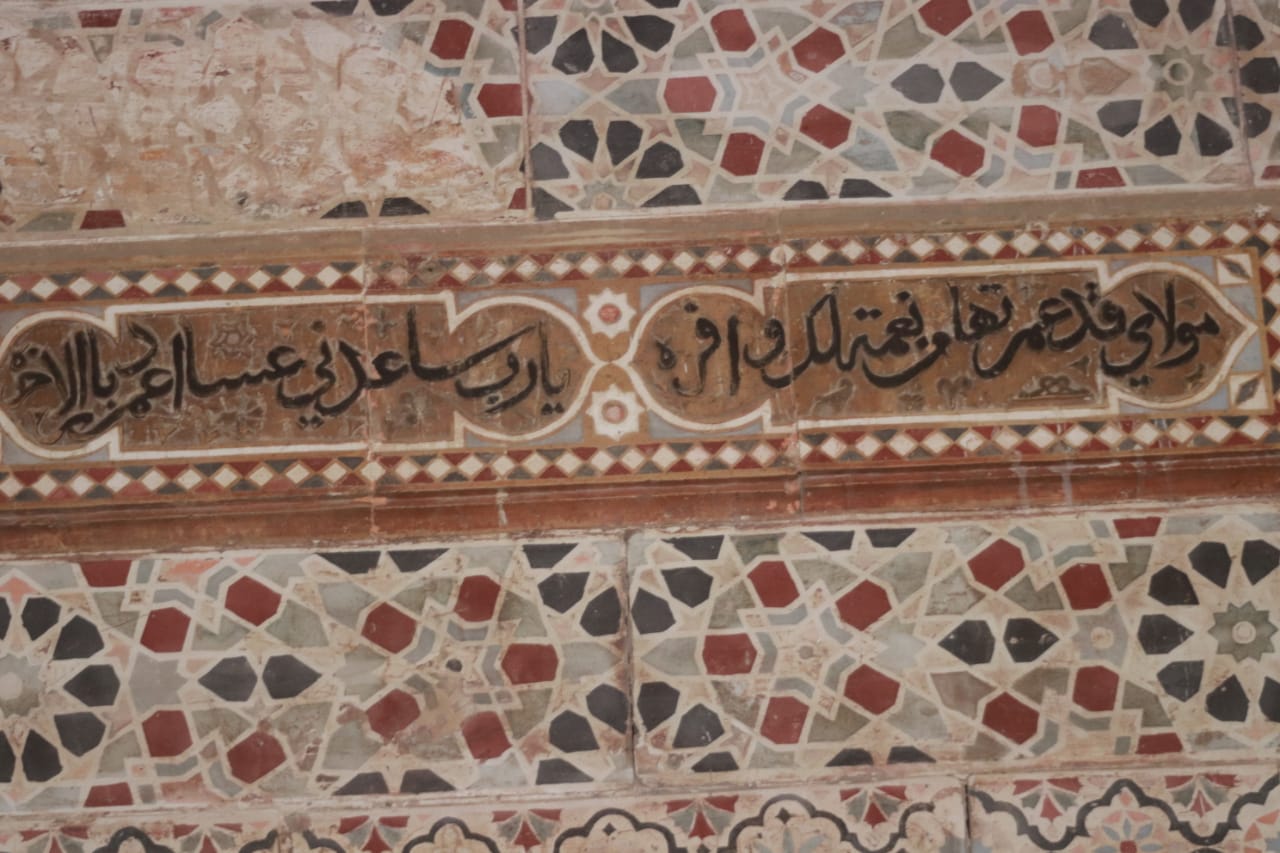 مولاي قد عمرتها ونعمة لك وافره
يا رب ساعدني عسا اعمر بها الاخره